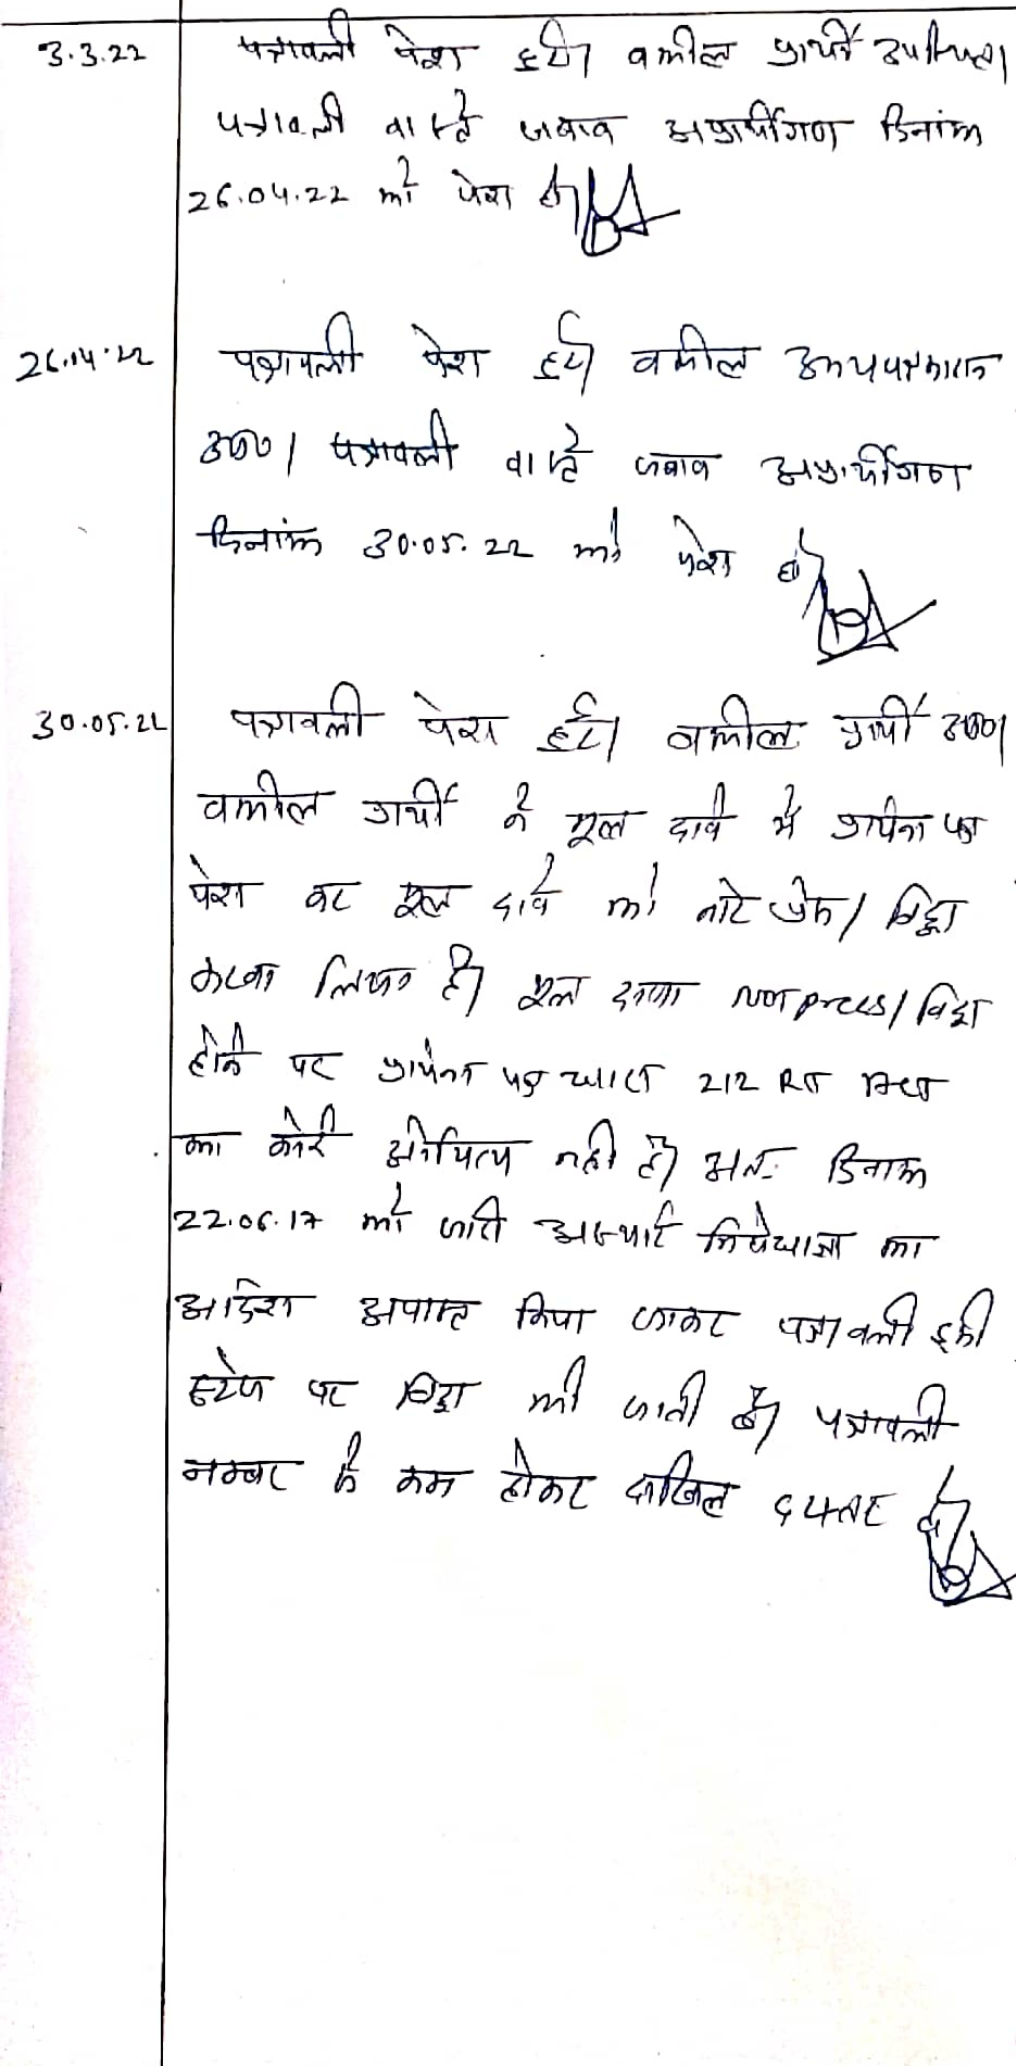 3.3.22 पत्रावली पेश हुयी। वकील प्रार्थी उपस्थित।
पत्रावली वास्ते जवाब अप्रार्थीगण दिनांक
26.04.22 को पेश हो।
26.04.22 पत्रावली पेश हुयी। वकील उभयपक्षकारान
उप०। पत्रावली वास्ते जवाब अप्रार्थीगण
दिनांक 30.05.22 को पेश हो।
30.05.22 पत्रावली पेश हुई। वकील प्रार्थी उप०।
वकील प्रार्थी ने मूल दावे में प्रार्थना पत्र
पेश कर मूल दावे को नोट प्रेस/विड्रा
करना लिखा है। मूल दावा not press/विड्रा
होने पर प्रार्थना पत्र धारा 212 RT Act
का कोई औचित्य नही है। अतः दिनांक
22.06.17 को जारी अस्थाई निषेधाज्ञा का
आदेश अपास्त किया जाकर पत्रावली इसी
स्टेज पर विड्रा की जाती है। पत्रावली
नम्बर से कम होकर दाखिल दफ्तर हो।